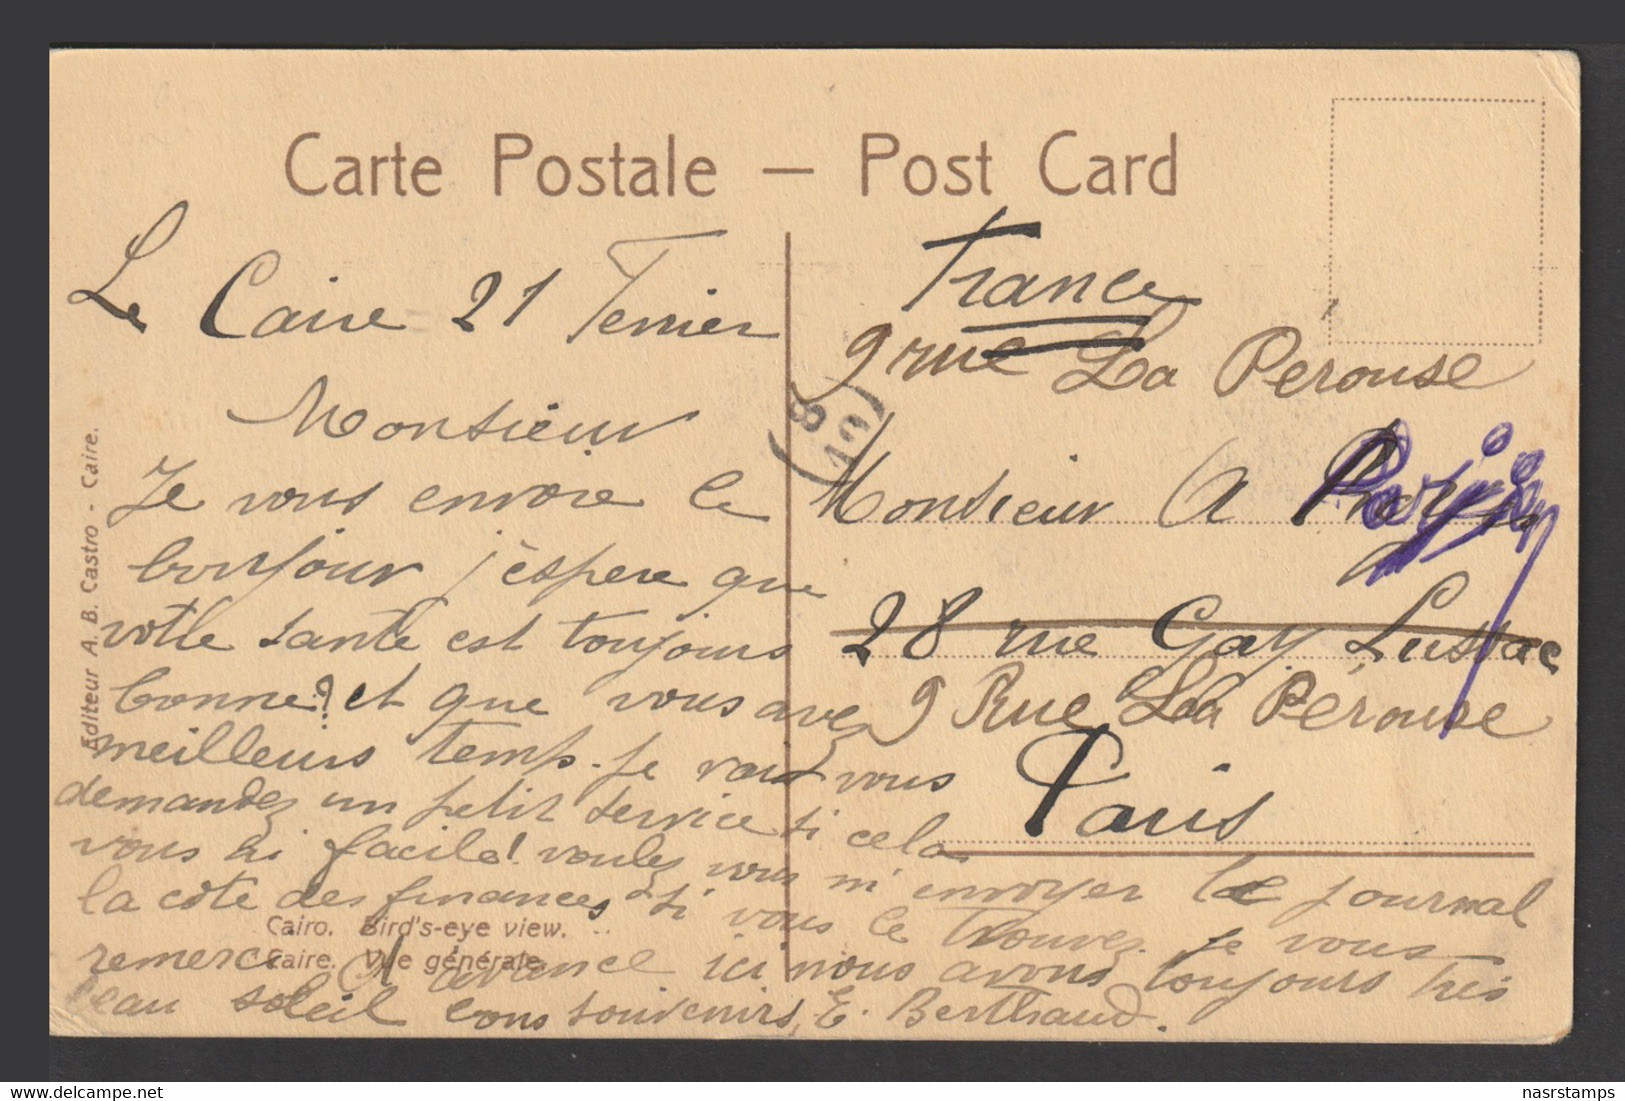 Carte Postale — Post Card
Le Caire 21
Monsieur
Je vous envoie le
bonjour j'èspere que
votre sante est toujours
bonne? et que vous avez
meilleurs temps. Je vous
demandez un petit service si cela
vous si facile! voulez vous m'envoyer le journal
la côte des finances si vous le trouvez. Je vous
remerci d'avance ici nous avons toujours tres
beau soleil bons souvenirs, E. Berthaud.
France
9 rue La Perouse
Monsieur A
28 rue Gay Lussac
9 Rue La Pérouse
Paris
8
10
Editeur A. B. Castro - Caire.
Cairo. Bird's-eye view.
Caire. Vue générale.
www.delcampe.net
nasrstamps